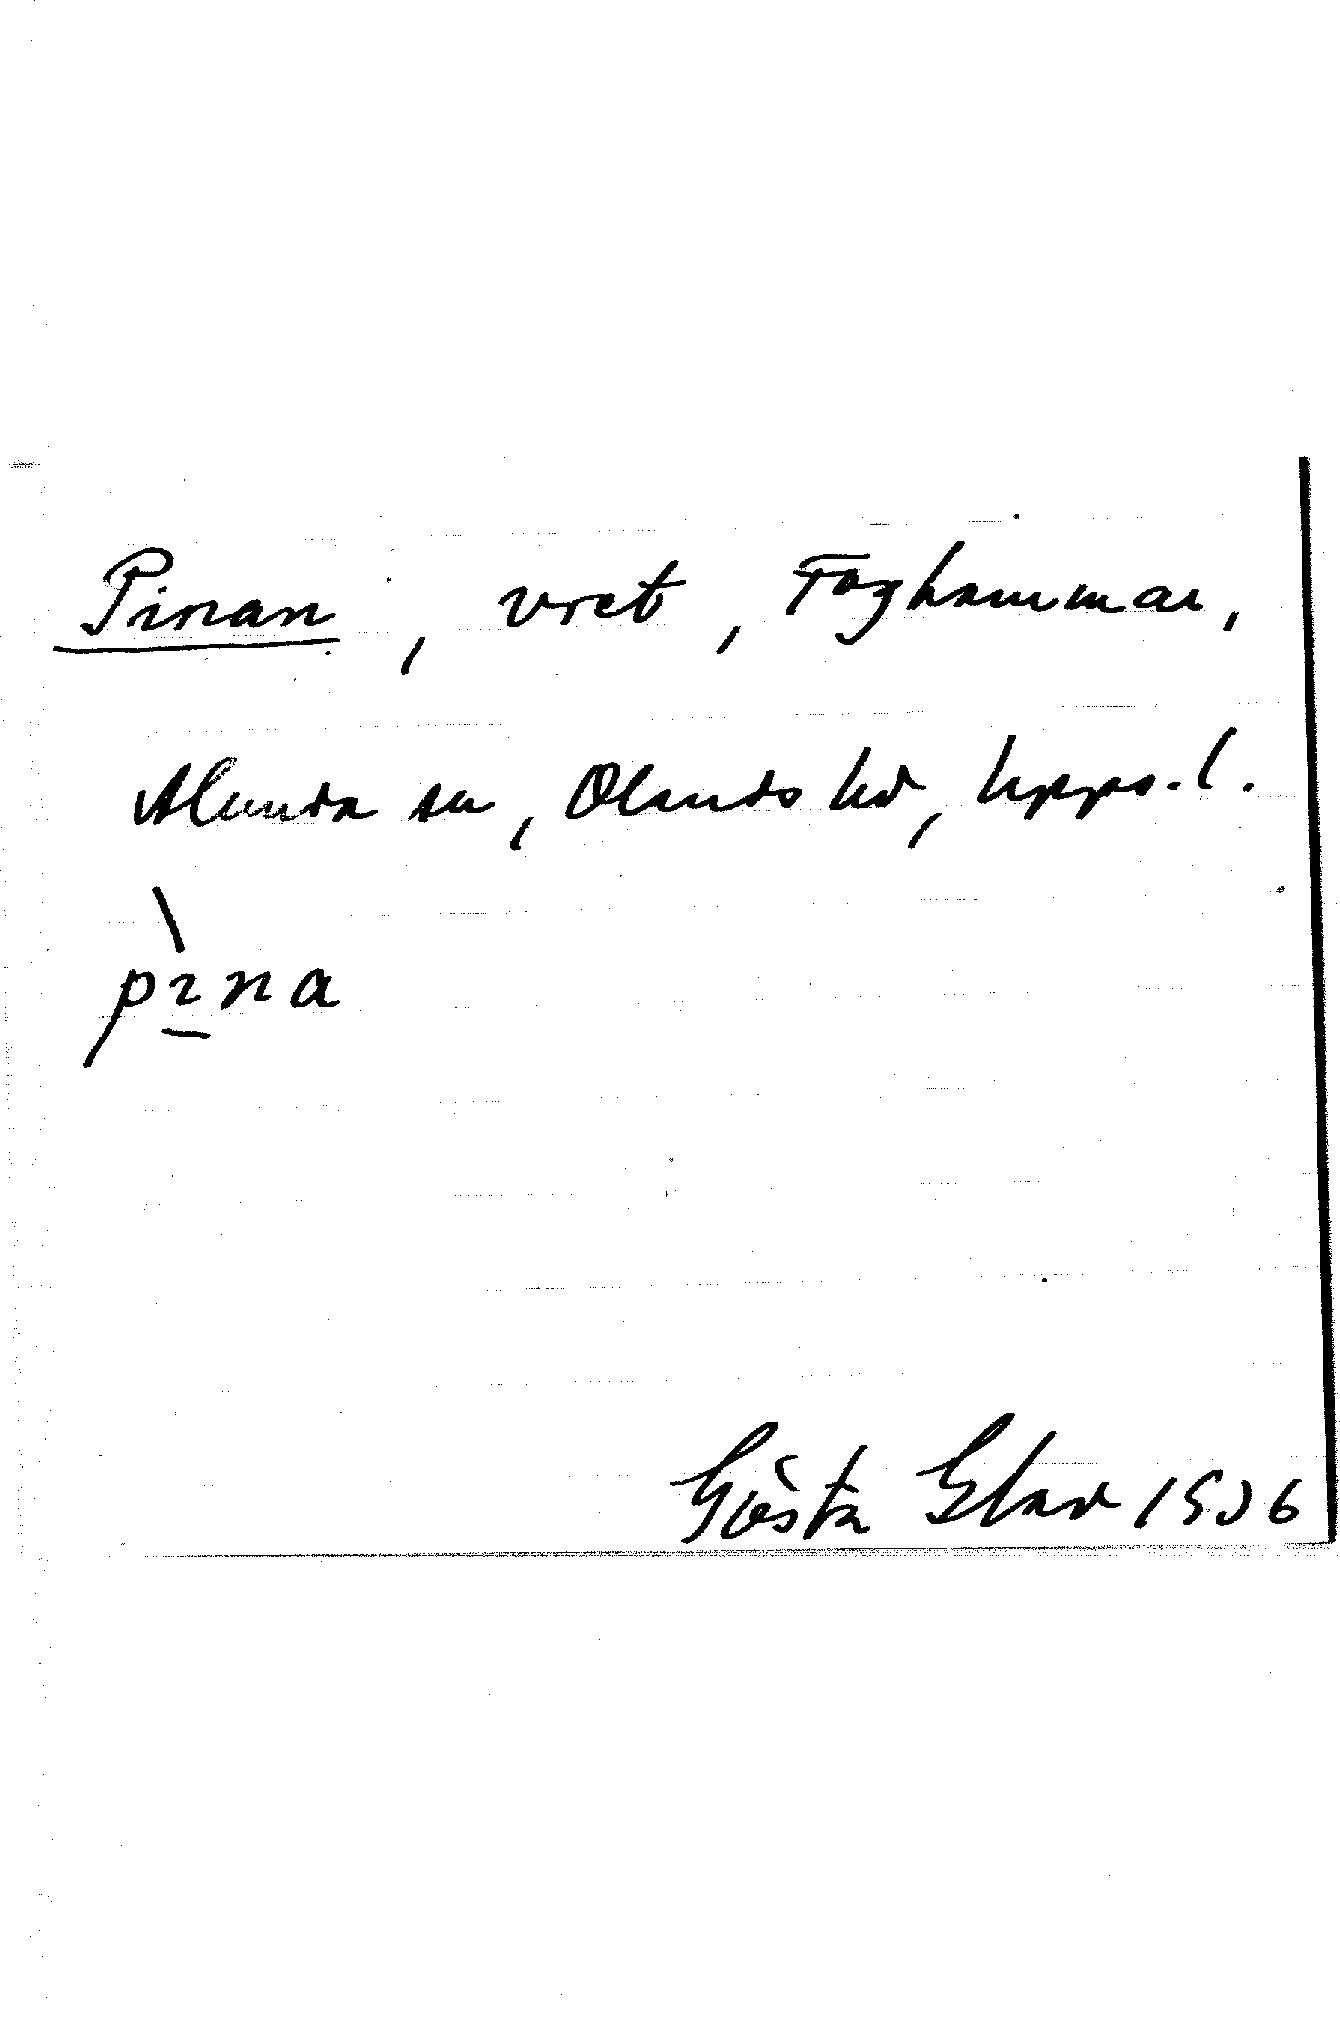 Pinan, vret, Foghammar,
Alunda sn, Olands hd, Upps. l.
pìna
Gösta Elav 1936